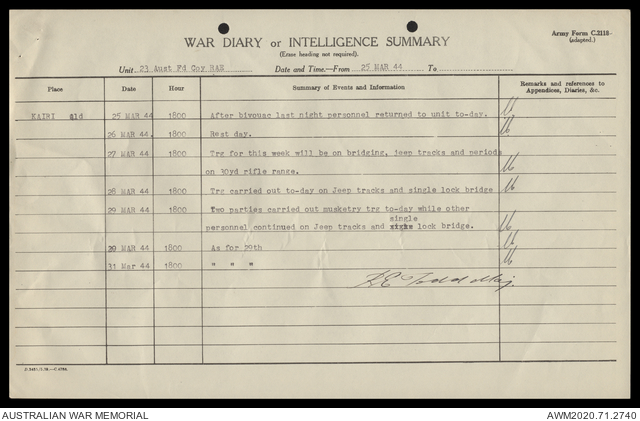 Army Form C.2118.
(adapted.)
WAR DIARY or INTELLIGENCE SUMMARY
(Erase heading not required).
Unit 23 Aust Fd Coy RAE Date and Time—From 25 MAR 44 To
Place Date Hour Summary of Events and Information Remarks and references to Appendices, Diaries, &c.
KAIRI Qld 25 MAR 44 1800 After bivouac last night personnel returned to unit to-day.
26 MAR 44. 1800 Rest day.
27 MAR 44 1800 Trg for this week will be on bridging, jeep tracks and periods
on 30yd rifle range.
28 MAR 44 1800 Trg carried out to-day on Jeep tracks and single lock bridge
29 MAR 44 1800 Two parties carried out musketry trg to-day while other
single
personnel continued on Jeep tracks and lock bridge.
29 MAR 44 1800 As for 29th
31 Mar 44 1800 " " "
Todd Maj.
AUSTRALIAN WAR MEMORIAL AWM2020.71.2740